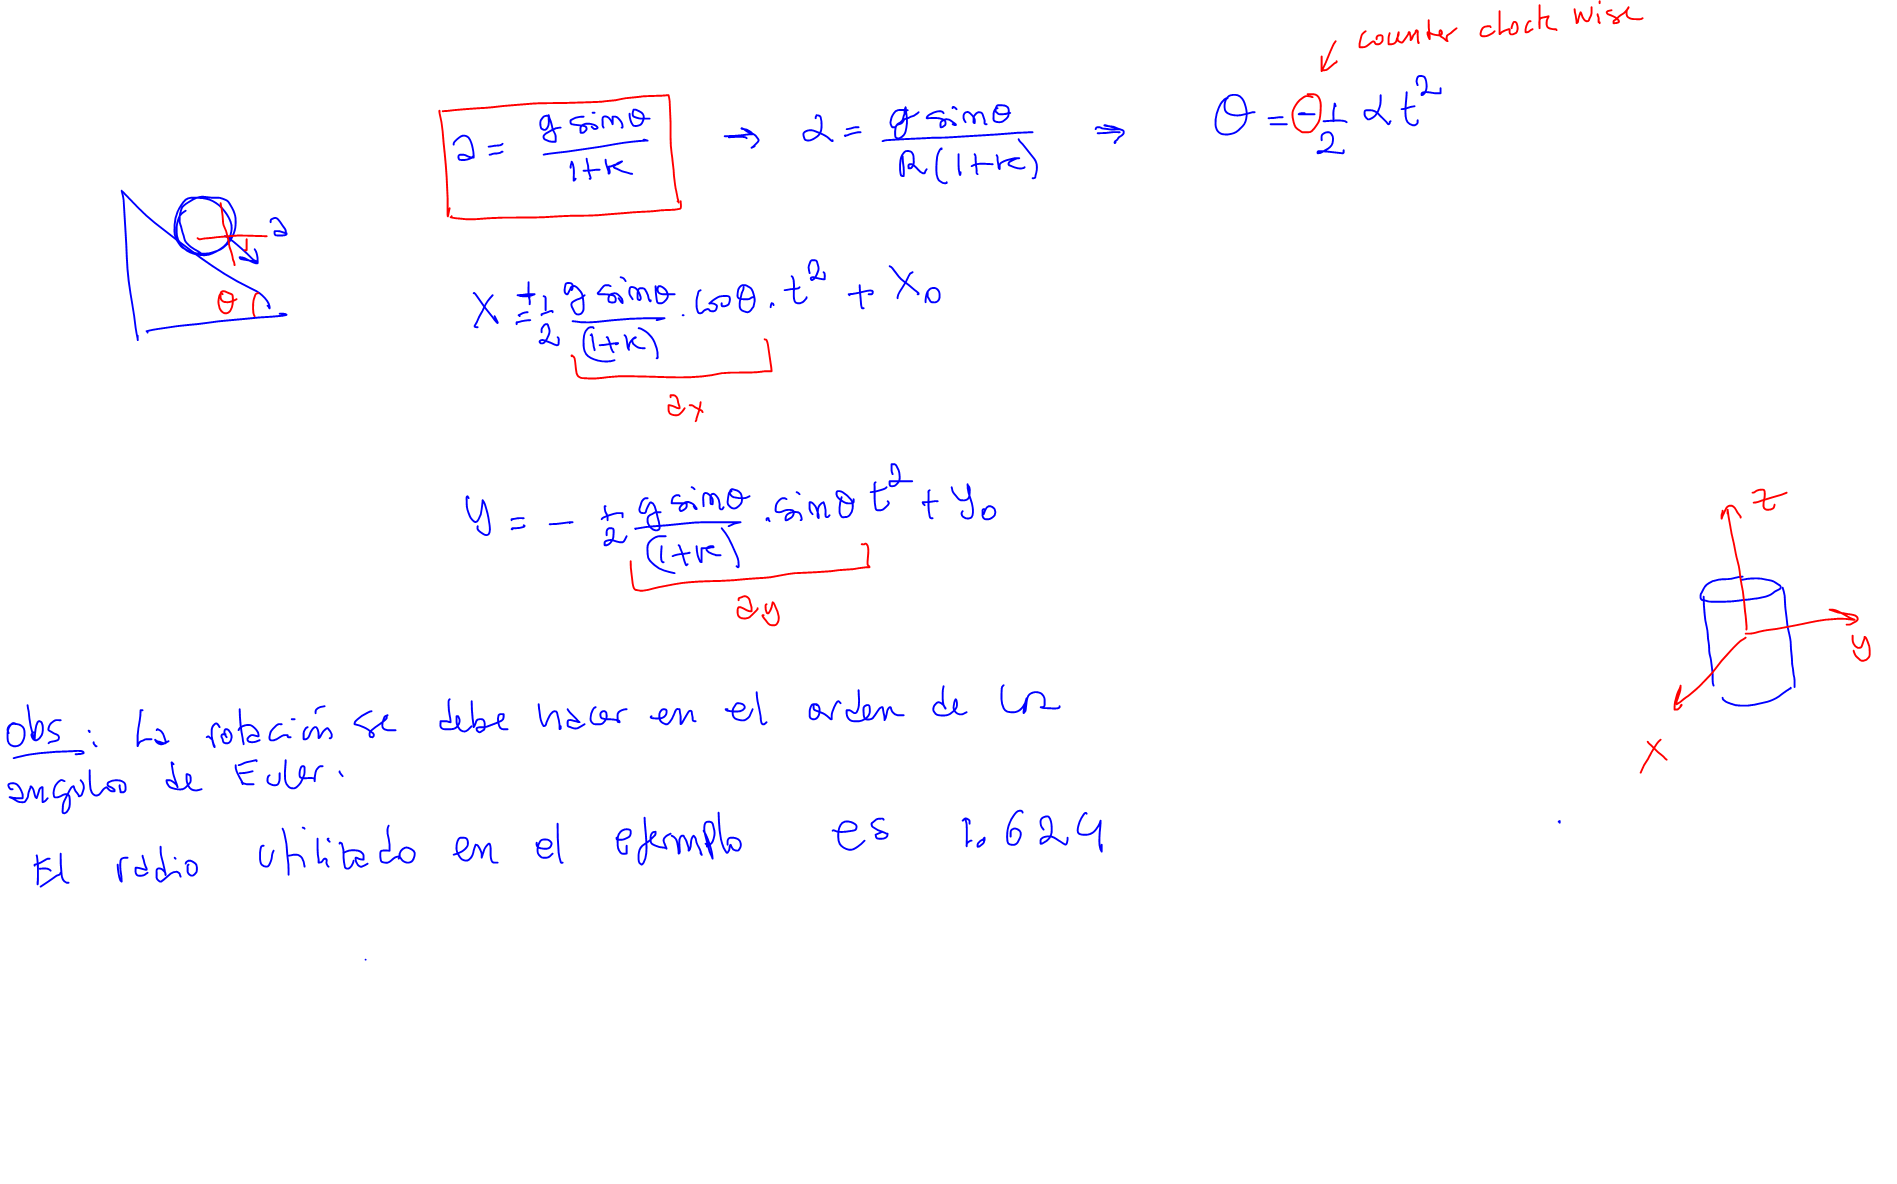 counter clock wise
a = g sinθ / 1+k → α = g sinθ / R(1+k) ⇒ θ = - 1/2 α t²
a
θ
x = + 1/2 g sinθ / (1+k) . cosθ . t² + x₀
ax
y = - 1/2 g sinθ / (1+k) . sinθ t² + y₀
ay
z
y
x
Obs: La rotación se debe hacer en el orden de
angulos de Euler.
El radio utilizado en el ejemplo es 1.624